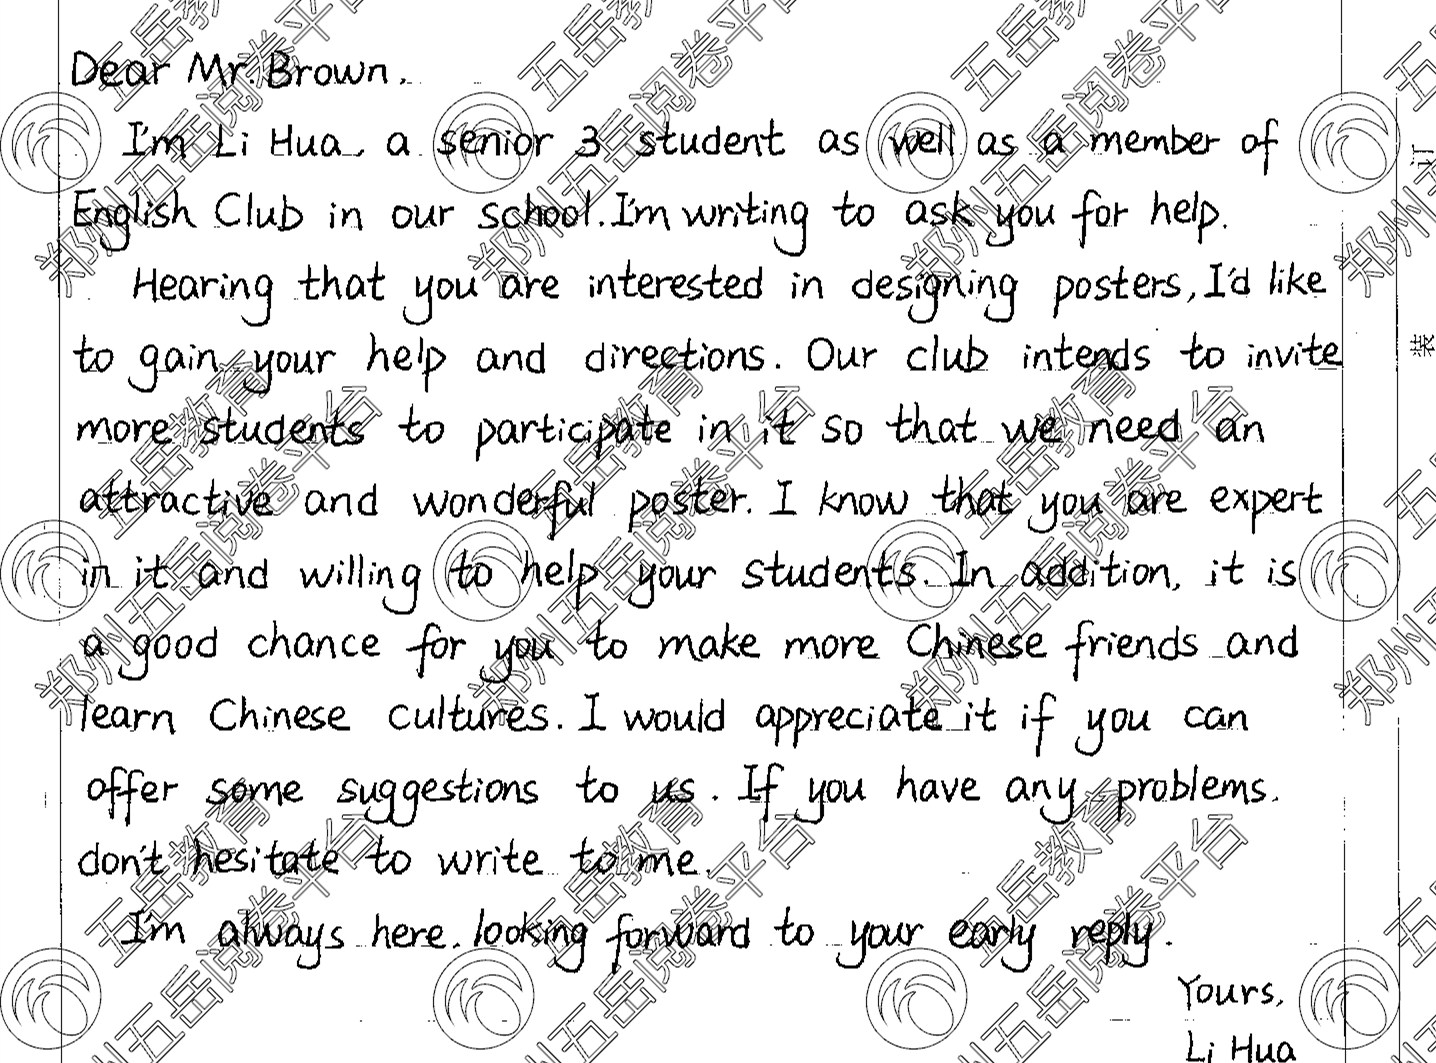 Dear Mr. Brown,
I'm Li Hua, a senior 3 student as well as a member of
English Club in our school. I'm writing to ask you for help.
Hearing that you are interested in designing posters, I'd like
to gain your help and directions. Our club intends to invite
more students to participate in it so that we need an
attractive and wonderful poster. I know that you are expert
in it and willing to help your students. In addition, it is
a good chance for you to make more Chinese friends and
learn Chinese cultures. I would appreciate it if you can
offer some suggestions to us. If you have any problems,
don't hesitate to write to me.
I'm always here, looking forward to your early reply.
Yours,
Li Hua
订
装
郑州五岳阅卷平台
五岳教育